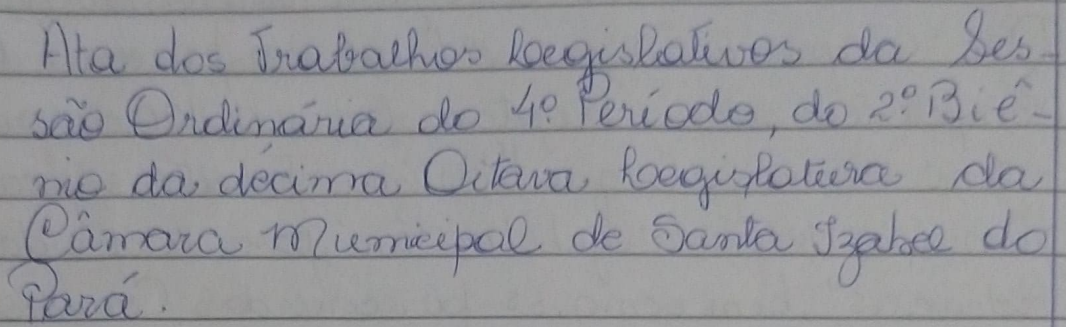 Ata dos Trabalhos Legislativos da Ses-
são Ordinária do 4º Período, do 2º Biê-
nio da décima Oitava Legislatura da
Câmara Municipal de Santa Izabel do
Pará.